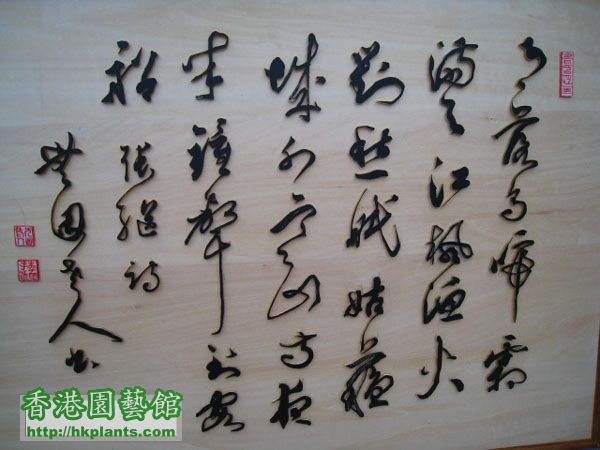 月落烏啼霜
滿天江楓漁火
對愁眠姑蘇
城外寒山寺夜
半鐘聲到客
船
張繼詩
老人書
香港園藝館
http://hkplants.com